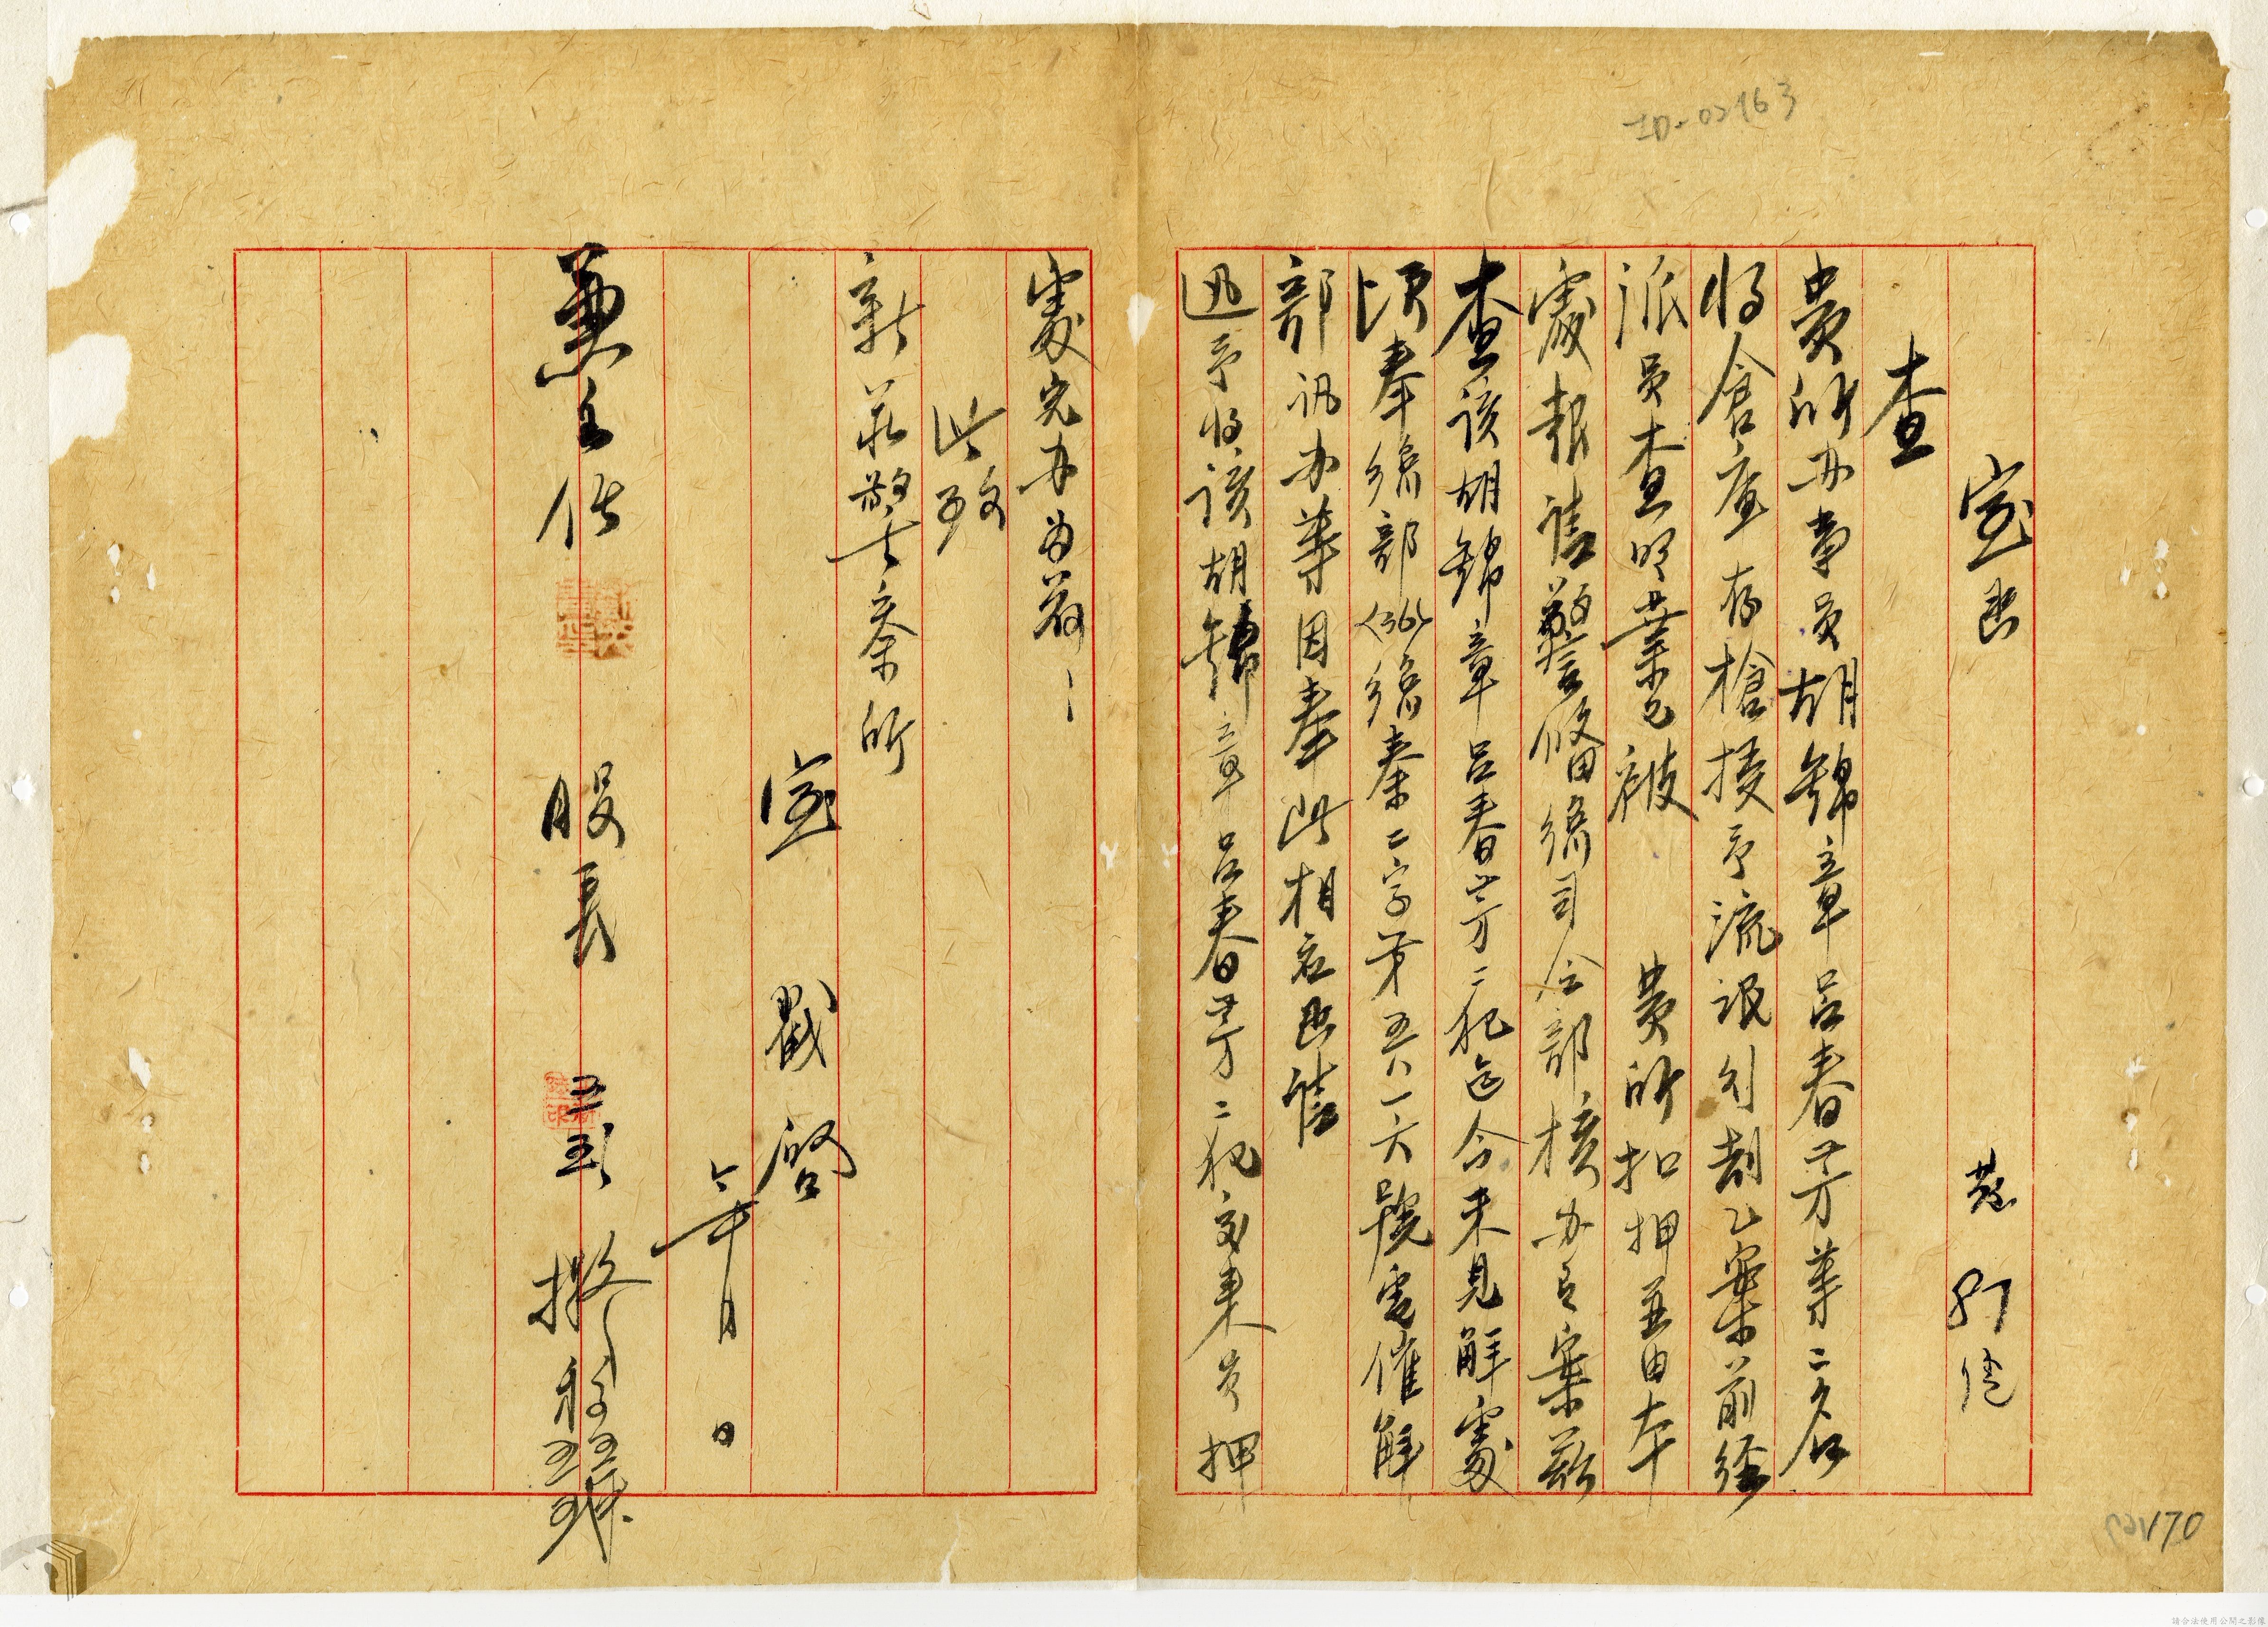 ID-02163
室函
查
貴所办事員胡錦章呂春芳等二名
將倉庫存槍接予流氓勾刼乙案前經
派員查明業已被 貴所扣押並由本
處報請警備總司令部核办在案茲
查該胡錦章呂春芳二犯迄今未見解處
頃奉總部(36)總秦二字第五八一六號電催解
部訊办等因奉此相应函請
迅予將該胡錦章呂春芳二犯交来員押
處究办為荷
此致
新莊警察所
室戳啓
年 月 日
兼主任
股長
擬
170
請合法使用公開之影像